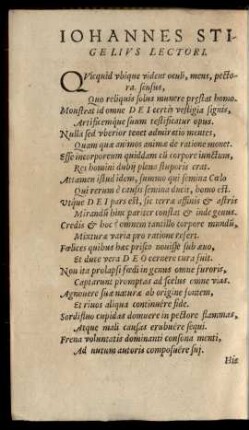 IOHANNES STI-
GELIVS LECTORI.
QVicquid vbique vident oculi, mens, pecto-
ra, sensus,
Quo reliquis solus munere præstat homo.
Monstrat id omne DEI certis vestigia signis,
Artificemque suum testificatur opus.
Nulla sed vberior tenet admiratio mentes,
Quam quæ an mos animæ de ratione monet.
Esse incorporeum quiddam cū corpore iunctum,
Res homini dubij plena stuporis erat.
Attamen istud idem, summo qui semina Cœlo
Qui rerum è causis semina ducit, homo est.
Vtque DEI pars est, sic terra affinis & astris
Mirandū hinc pariter constat & inde genus.
Credis & hoc? omnem tantillo corpore mundū,
Mixturæ varia pro ratione refert.
Fœlices quibus hæc prisco nouisse sub æuo,
Et duce vera DEO cernere cura fuit.
Non ita prolapsi fœdi in genus omne furoris,
Captarunt promptas ad scelus omne vias.
Agnouere suæ naturæ ab origine fontem,
Et riuos aliqua continuere fide.
Sordiflno cupidas domuere in pectore flammas,
Atque mali causas erubuere sequi.
Frena voluntatis dominanti consona menti,
Ad nutum autoris composuére sui.
Hic